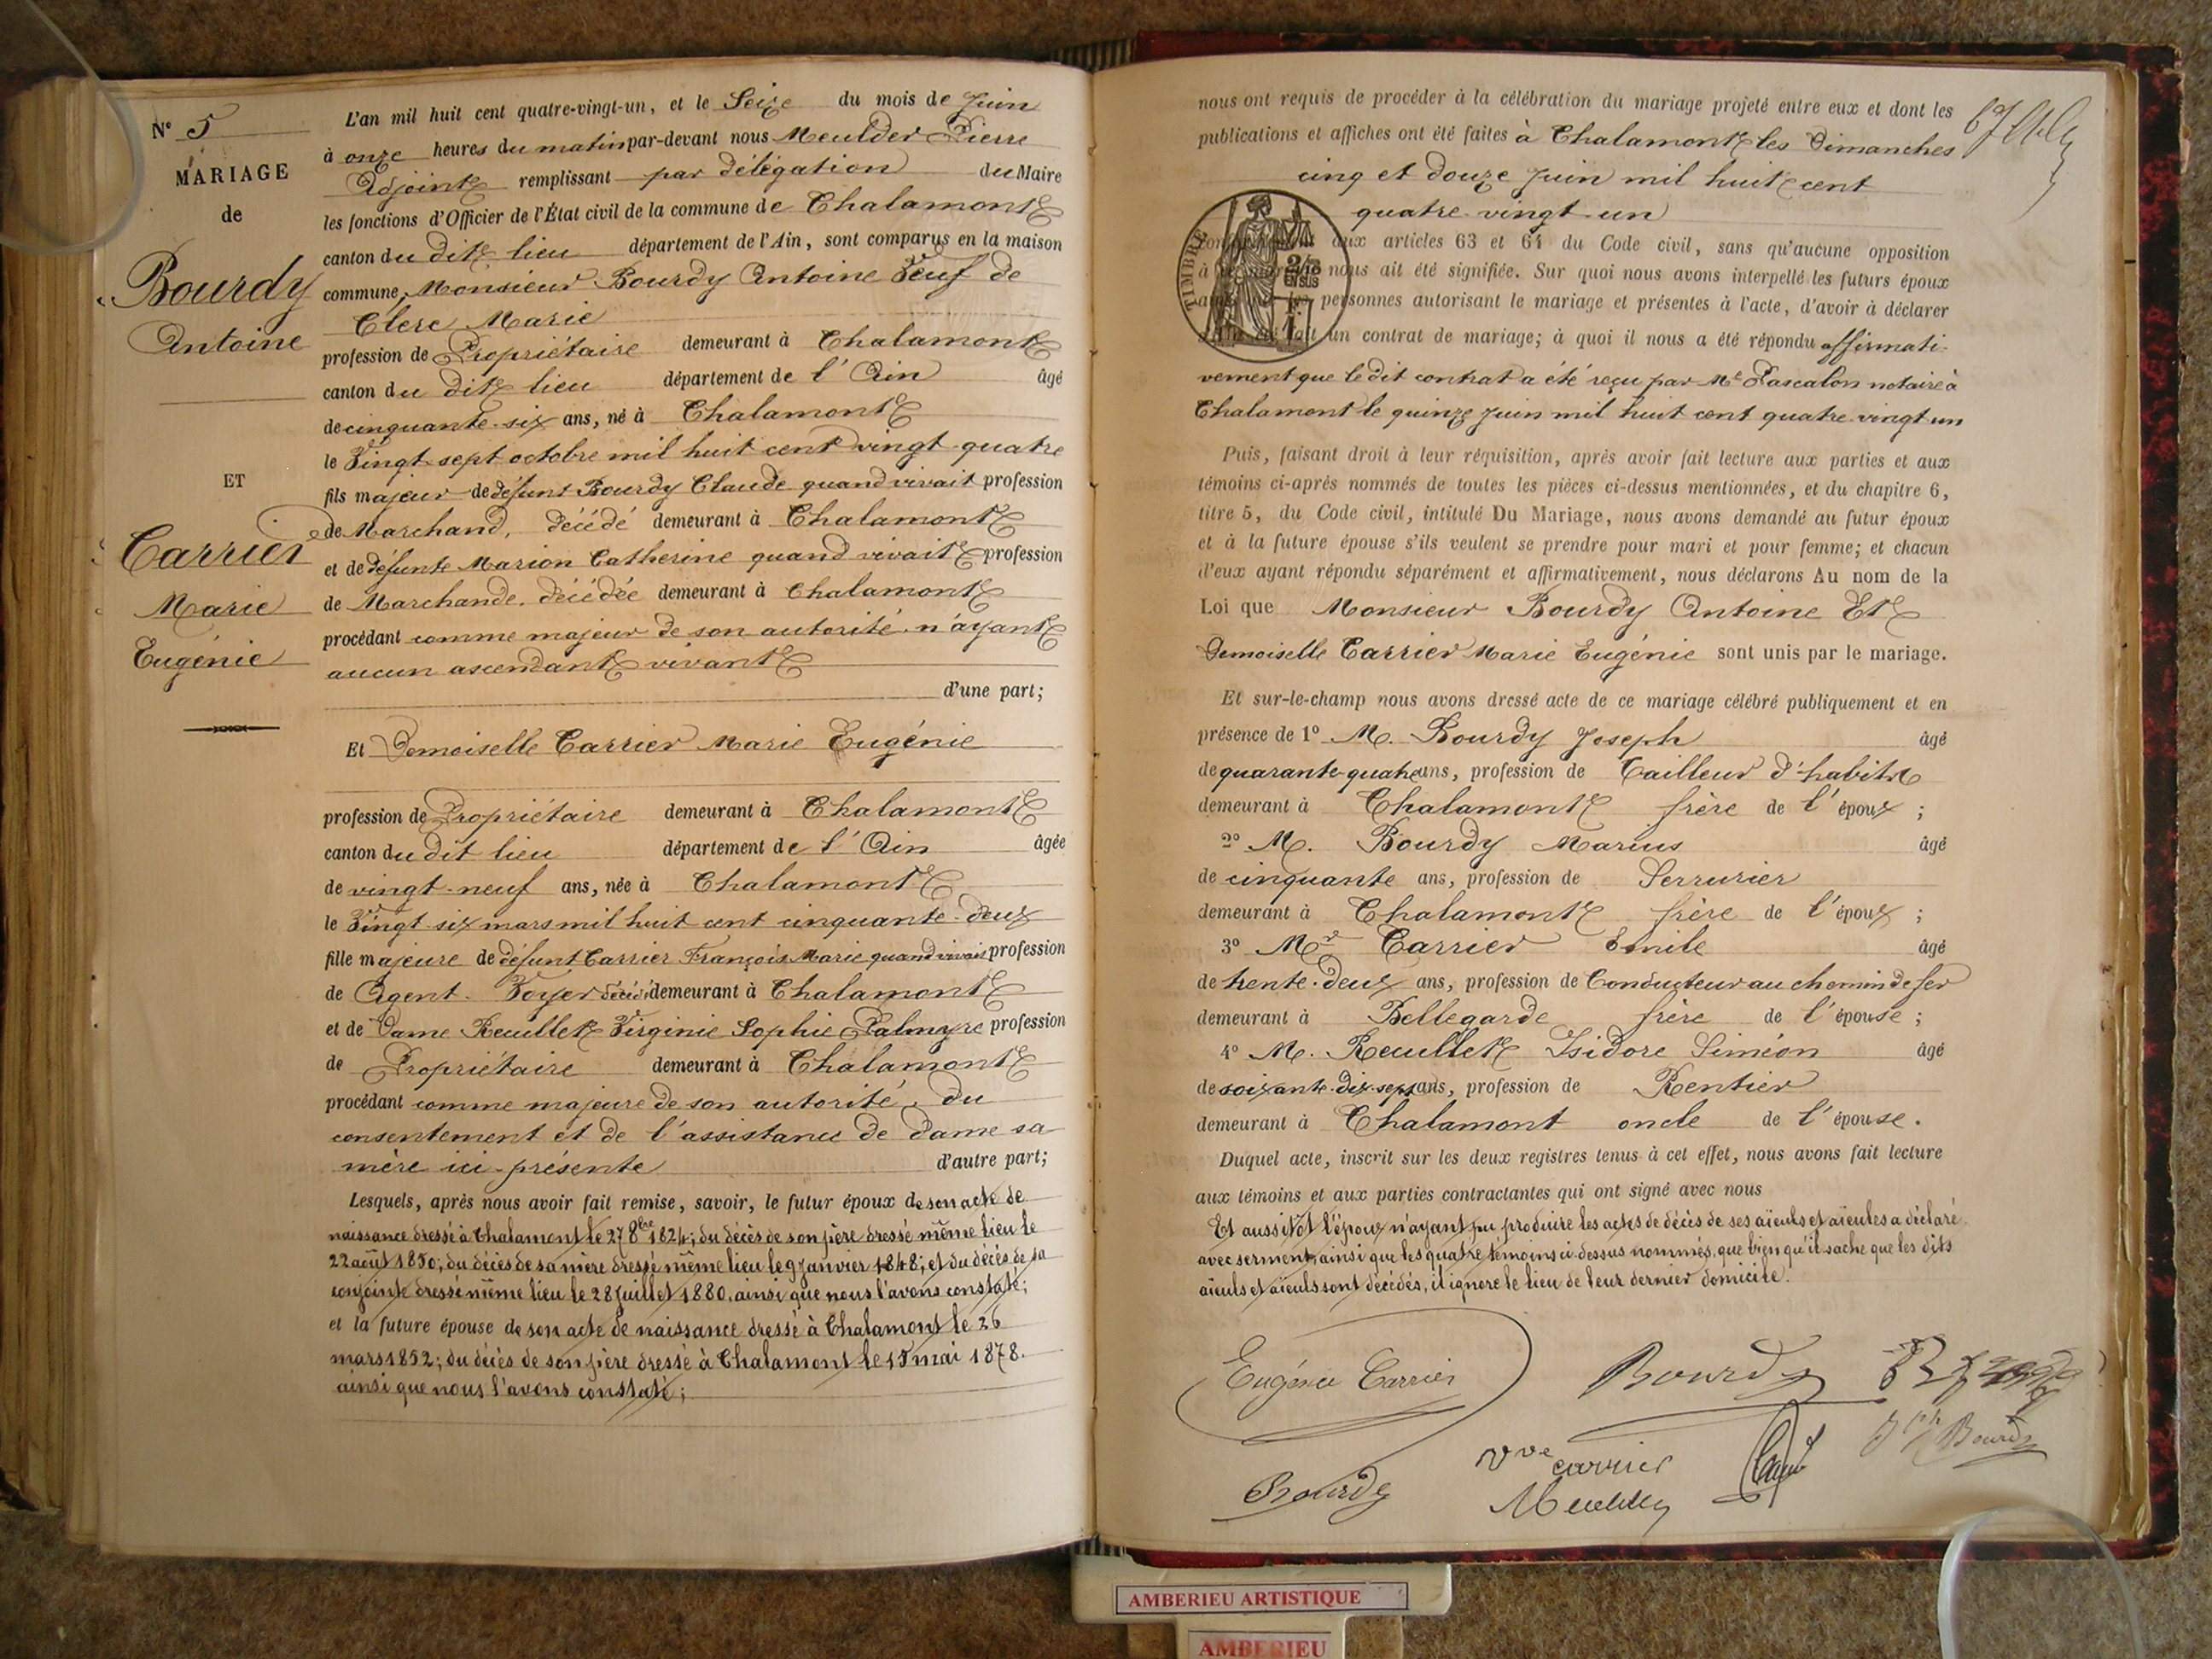 N° 5
MARIAGE
de
Bourdy
Antoine
ET
Carrier
Marie
Eugénie
L'an mil huit cent quatre-vingt-un, et le Seize du mois de Juin
à onze heures du matin par-devant nous Meulder Pierre
Adjoint remplissant par délégation du Maire
les fonctions d'Officier de l'État civil de la commune de Chalamont
canton du dit lieu département de l'Ain, sont comparus en la maison
commune, Monsieur Bourdy Antoine Veuf de
Clerc Marie
profession de Propriétaire demeurant à Chalamont
canton du dit lieu département de l'Ain âgé
de cinquante-six ans, né à Chalamont
le Vingt-sept octobre mil huit cent vingt-quatre
fils majeur de défunt Bourdy Claude quand vivait profession
de Marchand, décédé demeurant à Chalamont
et de défunte Marion Catherine quand vivait profession
de Marchande, décédée demeurant à Chalamont
procédant comme majeur de son autorité n'ayant
aucun ascendant vivant
d'une part;
Et Demoiselle Carrier Marie Eugénie
profession de Propriétaire demeurant à Chalamont
canton du dit lieu département de l'Ain âgée
de vingt-neuf ans, née à Chalamont
le Vingt-six mars mil huit cent cinquante-deux
fille majeure de défunt Carrier François Marie quand vivait profession
de Agent-Voyer décédé demeurant à Chalamont
et de Dame Reuillet Virginie Sophie Palmyre profession
de Propriétaire demeurant à Chalamont
procédant comme majeure de son autorité, du
consentement et de l'assistance de dame sa
mère ici-présente d'autre part;
Lesquels, après nous avoir fait remise, savoir, le futur époux de son acte de
naissance dressé à Chalamont le 27 8bre 1824; du décès de son père dressé même lieu le
22 août 1850; du décès de sa mère dressé même lieu le 9 janvier 1848; et du décès de sa
conjointe dressé même lieu le 28 juillet 1880, ainsi que nous l'avons constaté;
et la future épouse de son acte de naissance dressé à Chalamont le 26
mars 1852; du décès de son père dressé à Chalamont le 15 mai 1878.
ainsi que nous l'avons constaté;
nous ont requis de procéder à la célébration du mariage projeté entre eux et dont les
publications et affiches ont été faites à Chalamont les Dimanches
cinq et douze juin mil huit cent
quatre-vingt-un
TIMBRE
aux articles 63 et 64 du Code civil, sans qu'aucune opposition
à nous ait été signifiée. Sur quoi nous avons interpellé les futurs époux
personnes autorisant le mariage et présentes à l'acte, d'avoir à déclarer
un contrat de mariage; à quoi il nous a été répondu affirmati-
vement que le dit contrat a été reçu par Me Pascalon notaire à
Chalamont le quinze juin mil huit cent quatre-vingt-un
Puis, faisant droit à leur réquisition, après avoir fait lecture aux parties et aux
témoins ci-après nommés de toutes les pièces ci-dessus mentionnées, et du chapitre 6,
titre 5, du Code civil, intitulé Du Mariage, nous avons demandé au futur époux
et à la future épouse s'ils veulent se prendre pour mari et pour femme; et chacun
d'eux ayant répondu séparément et affirmativement, nous déclarons Au nom de la
Loi que Monsieur Bourdy Antoine Et
Demoiselle Carrier Marie Eugénie sont unis par le mariage.
Et sur-le-champ nous avons dressé acte de ce mariage célébré publiquement et en
présence de 1° M. Bourdy Joseph âgé
de quarante-quatre ans, profession de Tailleur d'habits
demeurant à Chalamont frère de l'époux ;
2° M. Bourdy Marius âgé
de cinquante ans, profession de Serrurier
demeurant à Chalamont frère de l'époux ;
3° Mr Carrier Emile âgé
de trente-deux ans, profession de Conducteur au chemin de fer
demeurant à Bellegarde frère de l'épouse ;
4° M. Reuillet Isidore Siméon âgé
de soixante-dix-sept ans, profession de Rentier
demeurant à Chalamont oncle de l'épouse.
Duquel acte, inscrit sur les deux registres tenus à cet effet, nous avons fait lecture
aux témoins et aux parties contractantes qui ont signé avec nous
Et aussitôt l'époux n'ayant pu produire les actes de décès de ses aïeuls et aïeules a déclaré
avec serment, ainsi que les quatre témoins ci-dessus nommés, que bien qu'il sache que les dits
aïeuls et aïeuls sont décédés, il ignore le lieu de leur dernier domicile.
Eugénie Carrier Bourdy
Jph Bourdy
Vve Carrier
Bourdy Meulder
AMBERIEU ARTISTIQUE
AMBERIEU